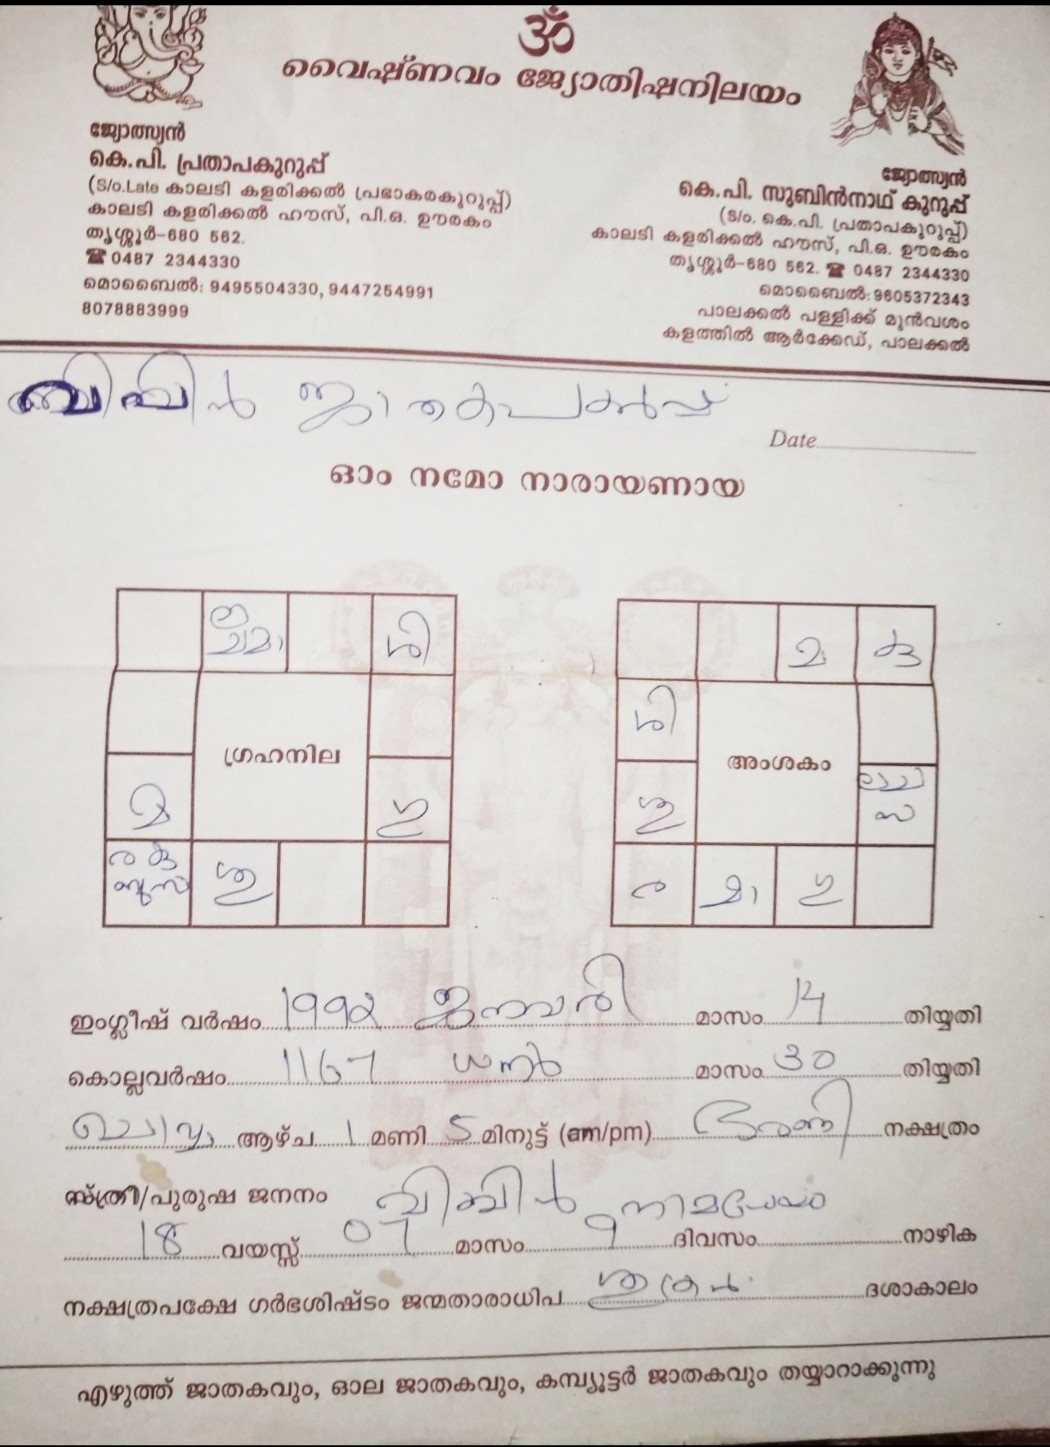 ॐ
വൈഷ്ണവം ജ്യോതിഷനിലയം
ജ്യോത്സ്യൻ
കെ.പി. പ്രതാപകുറുപ്പ്
(S/o.Late കാലടി കളരിക്കൽ പ്രഭാകരകുറുപ്പ്)
കാലടി കളരിക്കൽ ഹൗസ്, പി.ഒ. ഊരകം
തൃശ്ശൂർ-680 562.
☎ 0487 2344330
മൊബൈൽ: 9495504330, 9447254991
8078883999
ജ്യോത്സ്യൻ
കെ.പി. സുബിൻനാഥ് കുറുപ്പ്
(S/o. കെ.പി. പ്രതാപകുറുപ്പ്)
കാലടി കളരിക്കൽ ഹൗസ്, പി.ഒ. ഊരകം
തൃശ്ശൂർ-680 562. ☎ 0487 2344330
മൊബൈൽ: 9605372343
പാലക്കൽ പള്ളിക്ക് മുൻവശം
കളത്തിൽ ആർക്കേഡ്, പാലക്കൽ
ബിബിൻ ജാതകപകർപ്പ്
Date
ഓം നമോ നാരായണായ
ശി
ഗ്രഹനില
മ
ഗു
ര കു
ബു സ
ശു
മ കു
ശി
അംശകം
ശു
സ
ര മാ ഗു
ഇംഗ്ലീഷ് വർഷം 1992 ജനുവരി മാസം 14 തിയ്യതി
കൊല്ലവർഷം 1167 ധനു മാസം 30 തിയ്യതി
ചൊവ്വ ആഴ്ച 1 മണി 5 മിനുട്ട് (am/pm) ഭരണി നക്ഷത്രം
സ്ത്രീ/പുരുഷ ജനനം ബിബിൻ നാമധേയം
18 വയസ്സ് 07 മാസം 9 ദിവസം നാഴിക
നക്ഷത്രപക്ഷേ ഗർഭശിഷ്ടം ജന്മതാരാധിപ ശുക്രൻ ദശാകാലം
എഴുത്ത് ജാതകവും, ഓല ജാതകവും, കമ്പ്യൂട്ടർ ജാതകവും തയ്യാറാക്കുന്നു